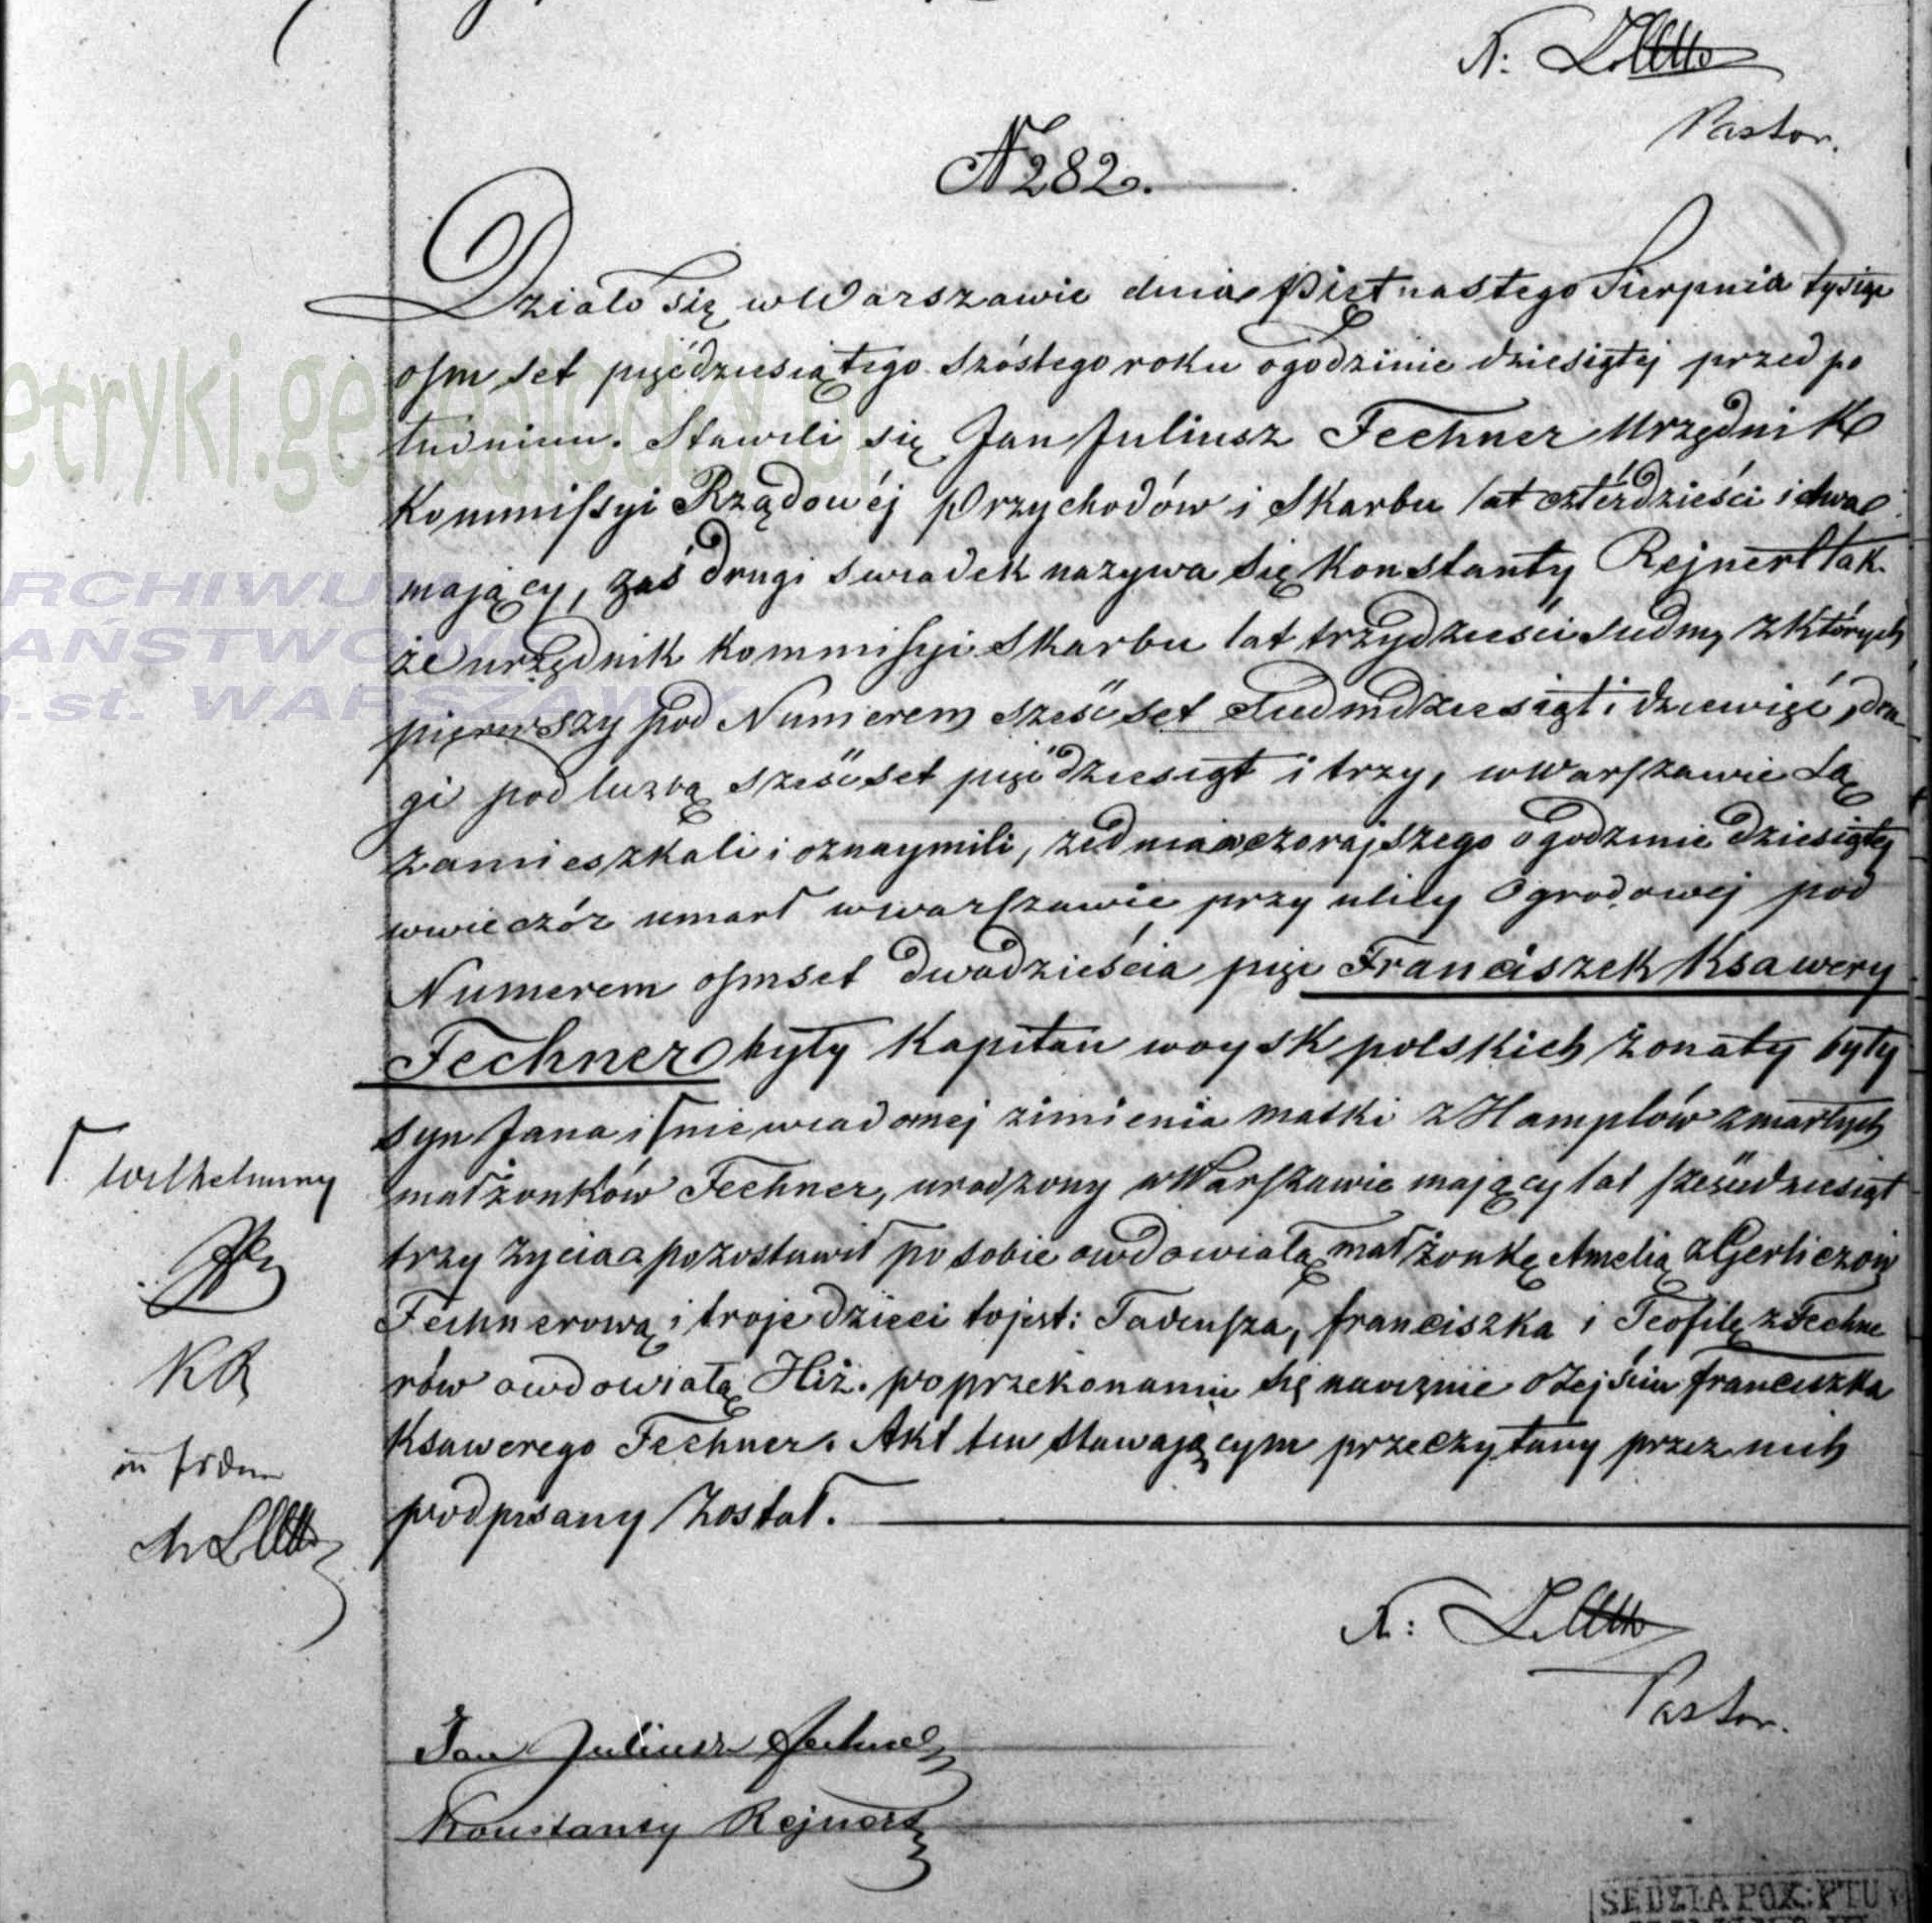 N:
Pastor.
N 282.
Działo się w Warszawie dnia Piętnastego Sierpnia tysiąc
osm set pięćdziesiątego szóstego roku o godzinie dziesiątej przed po
łudniem. Stawili się Jan Juliusz Fechner Urzędnik
Kommissyi Rządowéj Przychodów i Skarbu lat czterdzieści i dwa
mający, zaś drugi swiadek nazywa się Konstanty Rejnert tak
że urzędnik Kommissyi Skarbu lat trzydzieści siedm, z których
pierwszy pod Numerem sześćset siedmdziesiąt i dziewięć, dru
gi pod liczbą sześćset pięćdziesiąt i trzy, w Warszawie są
zamieszkali i oznaymili, że dnia wczorajszego o godzinie dziesiątej
w wieczór umarł w Warszawie przy ulicy Ogrodowej pod
Numerem osmset dwadzieścia pięć Franciszek Ksawery
Fechner były Kapitan woysk polskich żonaty były
syn Jana i niewiadomej z imienia matki z Hamplów zmarłych
małżonków Fechner, urodzony w Warszawie mający lat sześćdziesiąt
trzy życia pozostawił po sobie owdowiałą małżonkę Amelią z Gerliczów
Fechnerową i troje dzieci to jest: Tadeusza, franciszka i Teofilę z Fechne
rów owdowiałą Hiż. po przekonaniu się naocznie o zejściu franciszka
Ksawerego Fechner. Akt ten stawającym przeczytany przez nich
podpisany został.
Wilhelminy
KR
N:
Pastor.
Jan Juliusz Fechner
Konstanty Rejnert
SĘDZIA POK: PTU
metryki.genealodzy.pl
ARCHIWUM
PAŃSTWOWE
m.st. WARSZAWY